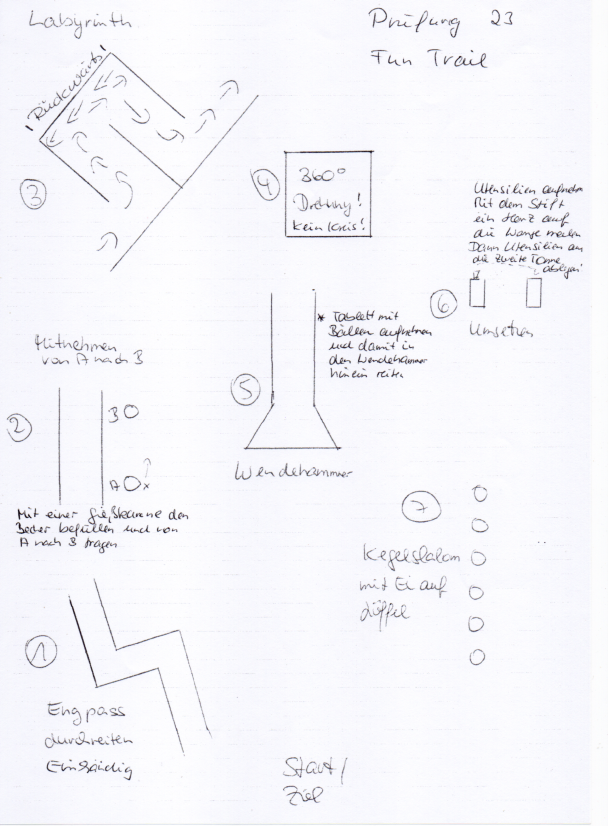 Labyrinth
Prüfung 23
Fun Trail
! Rückwärts !
3
4
360°
Drehung!
kein Kreis!
Utensilien aufnehm
Mit dem Stift
ein Herz auf
die Wange malen
Dann Utensilien an
die zweite Tonne
ablegen!
6
Umsetzen
* Tablett mit
Bällen aufnehmen
und damit in
den Wendehammer
hinein reiten
5
Wendehammer
Mitnehmen
von A nach B
2
B
A x
Mit einer Gießkanne den
Becher befüllen und von
A nach B tragen
7
Kegelslalom
mit Ei auf
Löffel
1
Engpass
durchreiten
Einhändig
Start /
Ziel